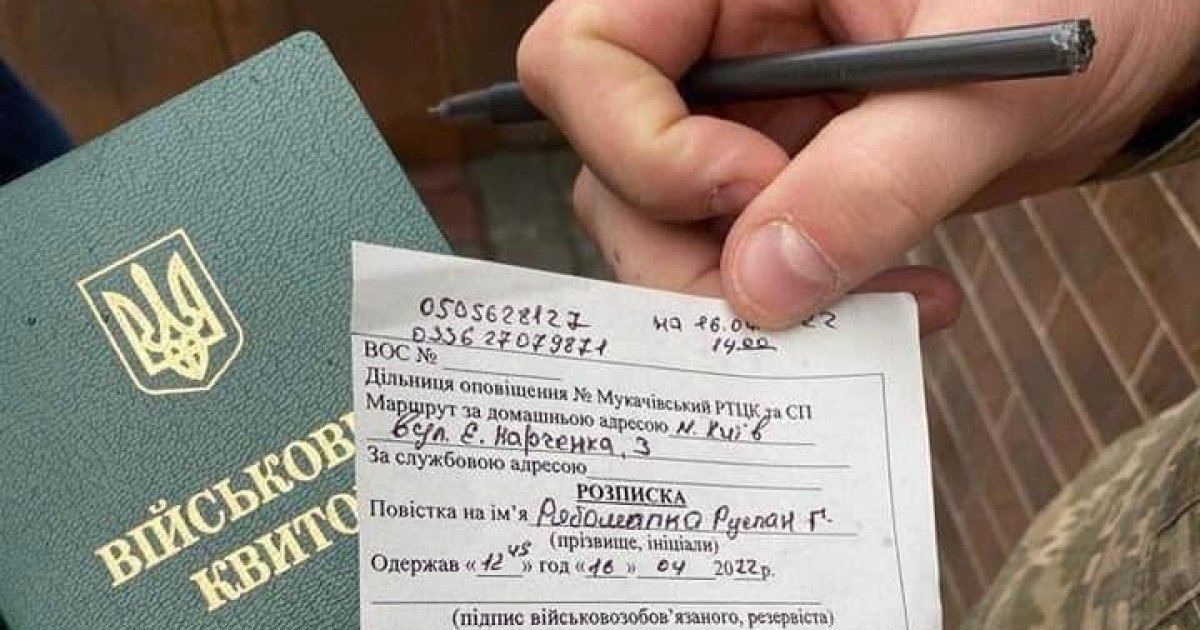 ВІЙСЬКОВИ
КВИТО
0505628127
0336 27079871
на 16.04 22
14.00
ВОС №
Дільниця оповіщення № Мукачівський РТЦК та СП
Маршрут за домашньою адресою м. Київ
вул. Є. Харченка, 3
За службовою адресою
РОЗПИСКА
Повістка на ім’я Рябошапко Руслан Г.
(прізвище, ініціали)
Одержав «12 45» год «16» 04 2022 р.
(підпис військовозобов’язаного, резервіста)